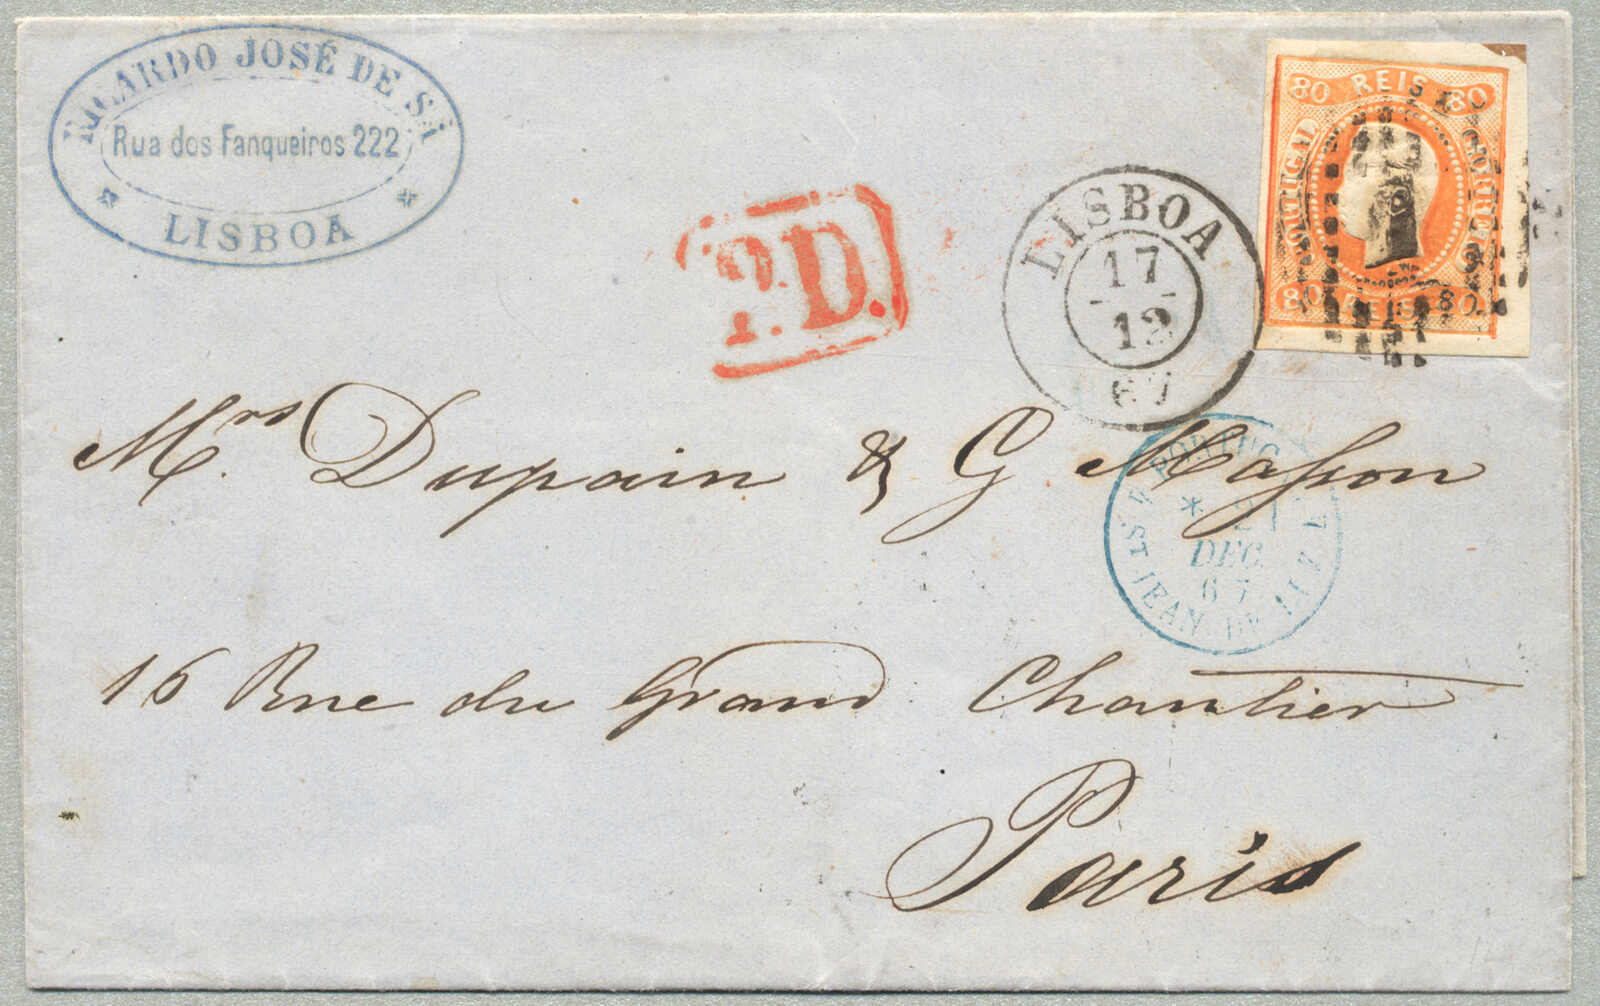 RICARDO JOSÉ DE SÁ
Rua dos Fanqueiros 222
LISBOA
P.D.
LISBOA
17
12
67
80 REIS 80
PORTUGAL
CORREIO
80 REIS 80
Mrs. Dupain & G Masson
16 Rue du Grand Chantier
Paris
21
DEC.
67
ST JEAN DE LUZ